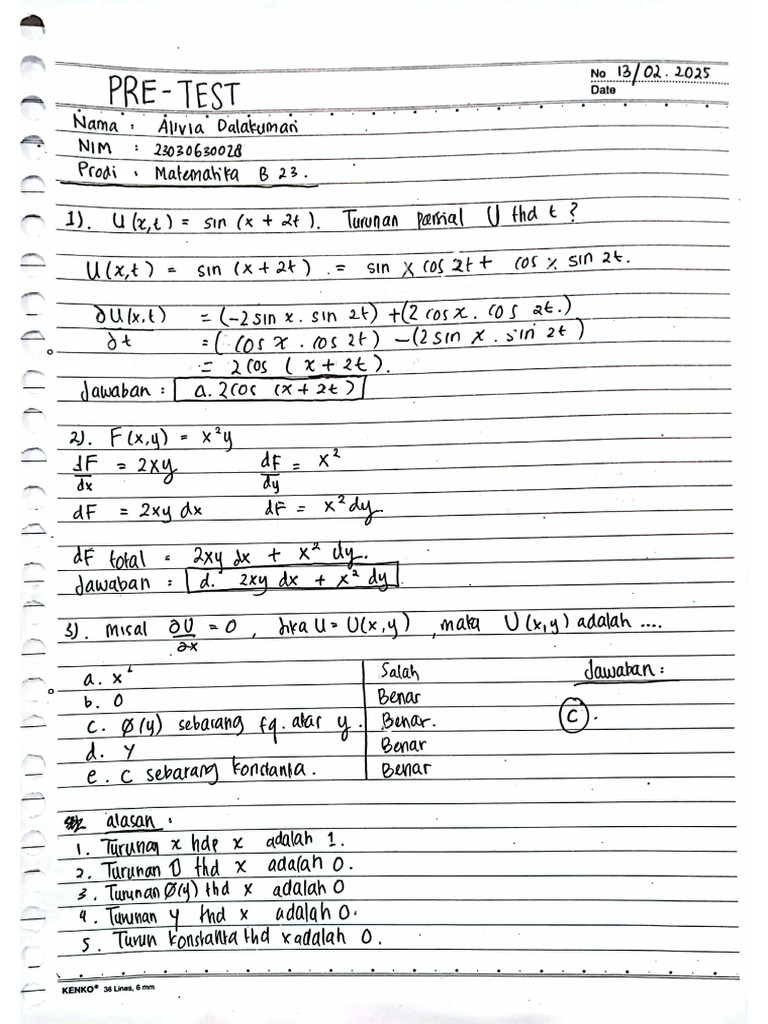 No 13/02.2025
Date
PRE-TEST
Nama : Alivia Dalakuman
NIM : 23030630028
Prodi : Matematika B 23.
1). U(x,t) = sin (x + 2t). Turunan parsial U thd t ?
U(x,t) = sin (x + 2t) . = sin x cos 2t + cos x sin 2t.
∂U(x,t) = (-2 sin x . sin 2t) + (2 cos x . cos 2t.)
∂t = ( cos x . cos 2t) - (2 sin x . sin 2t)
= 2 cos (x + 2t).
Jawaban : a. 2cos (x + 2t)
2). F(x,y) = x²y
dF/dx = 2xy dF/dy = x²
dF = 2xy dx dF = x² dy
dF total = 2xy dx + x² dy.
Jawaban : d. 2xy dx + x² dy
3). misal ∂U/∂x = 0 , Jika U = U(x,y) , maka U(x,y) adalah ....
a. x Salah Jawaban :
b. 0 Benar
c. Ø(y) sebarang fq. atar y. Benar. C.
d. y Benar
e. C sebarang konstanta. Benar
alasan :
1. Turunan x hdp x adalah 1.
2. Turunan 0 thd x adalah 0.
3. Turunan Ø(y) thd x adalah 0
4. Turunan y thd x adalah 0.
5. Turun konstanta thd x adalah 0.
KENKO® 36 Lines, 6 mm